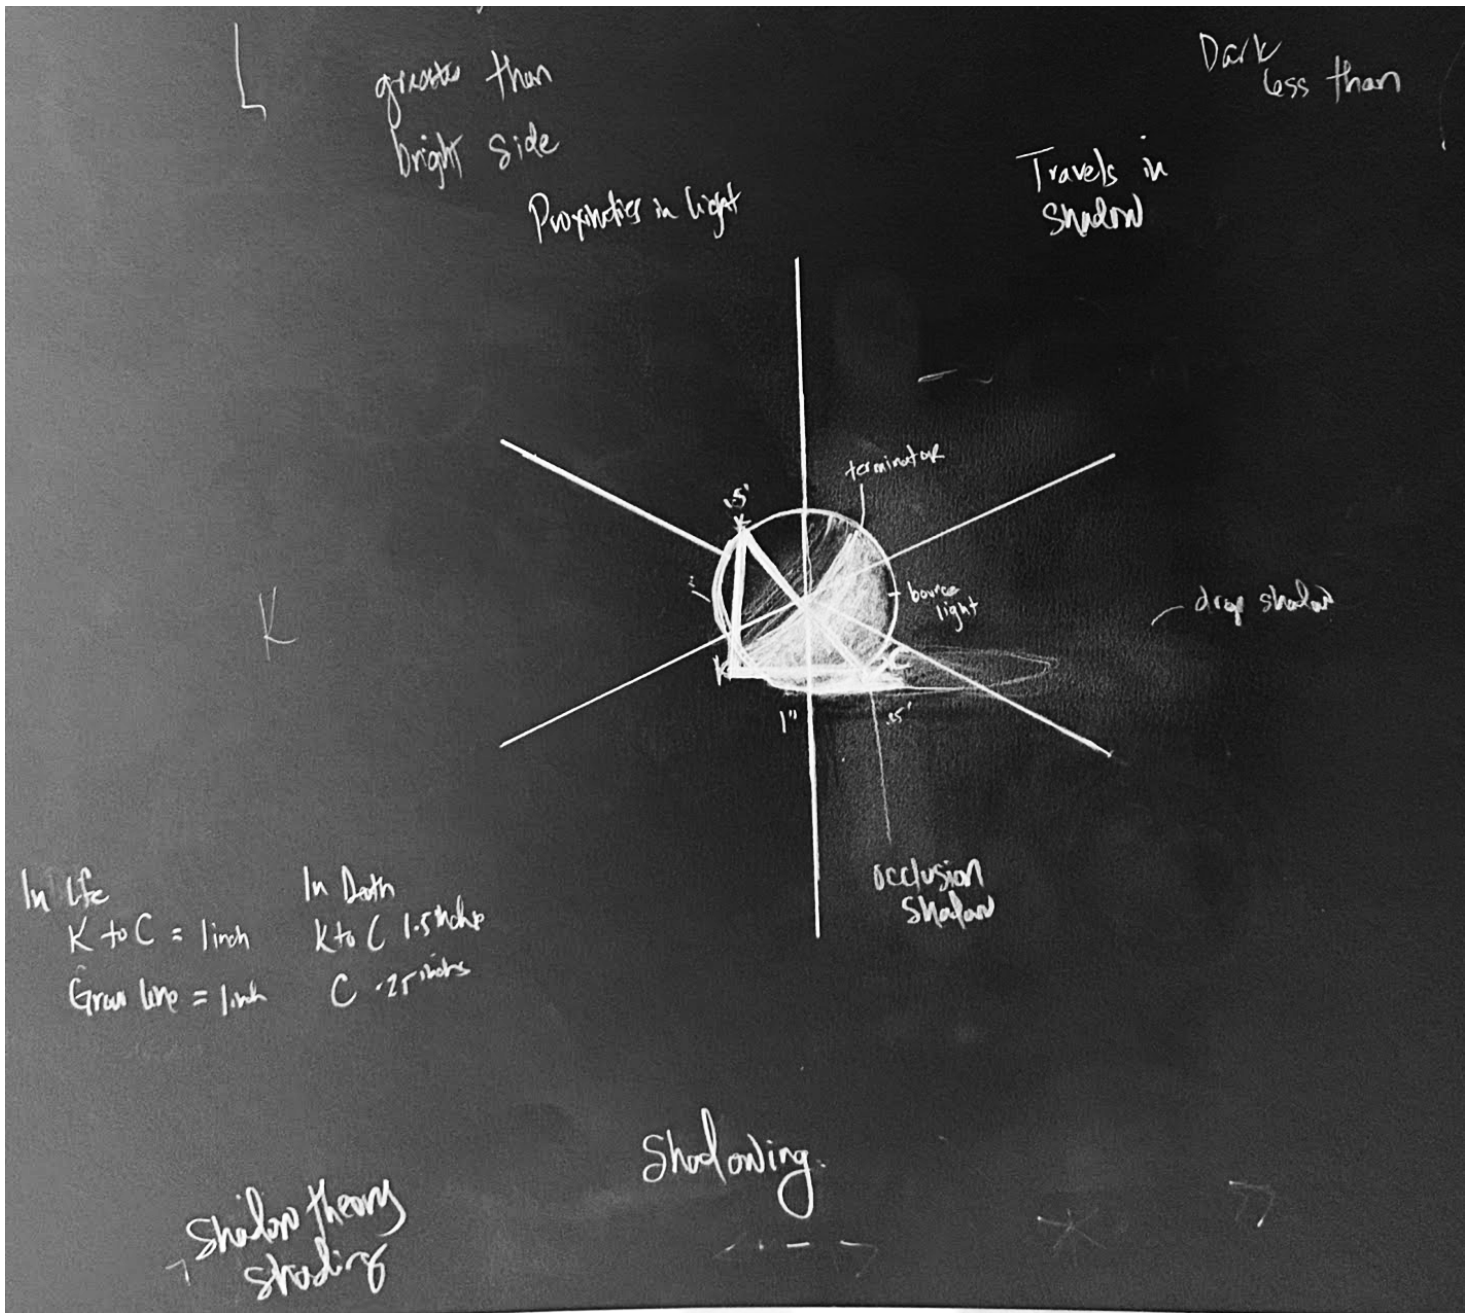 L
greater than
bright side
Proximities in light
Dark
less than
Travels in
shadow
terminator
.5'
K
bounce
light
drop shadow
K
K
C
1"
.25'
occlusion
shadow
In Life
K to C = 1 inch
= 1 inch
In Death
K to C 1.5 inches
C .25 inches
Shadowing.
Shadow theory
shading